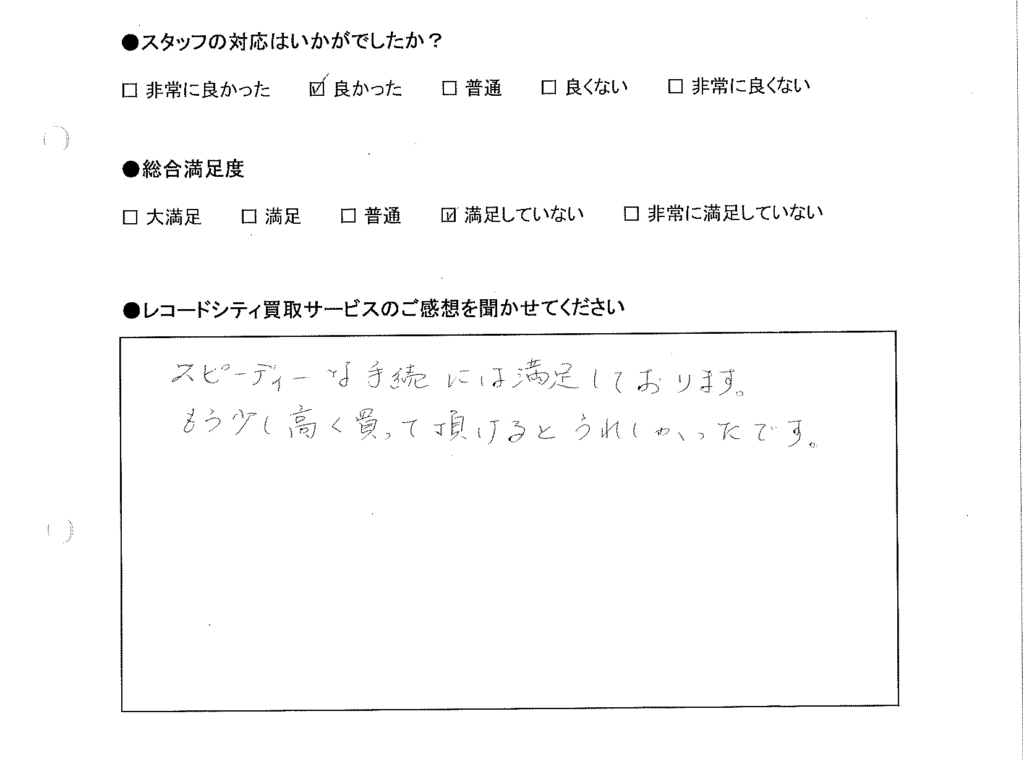 ●スタッフの対応はいかがでしたか？
□ 非常に良かった ☑ 良かった □ 普通 □ 良くない □ 非常に良くない
●総合満足度
□ 大満足 □ 満足 □ 普通 ☑ 満足していない □ 非常に満足していない
●レコードシティ買取サービスのご感想を聞かせてください
スピーディーな手続には満足しております。
もう少し高く買って頂けるとうれしかったです。